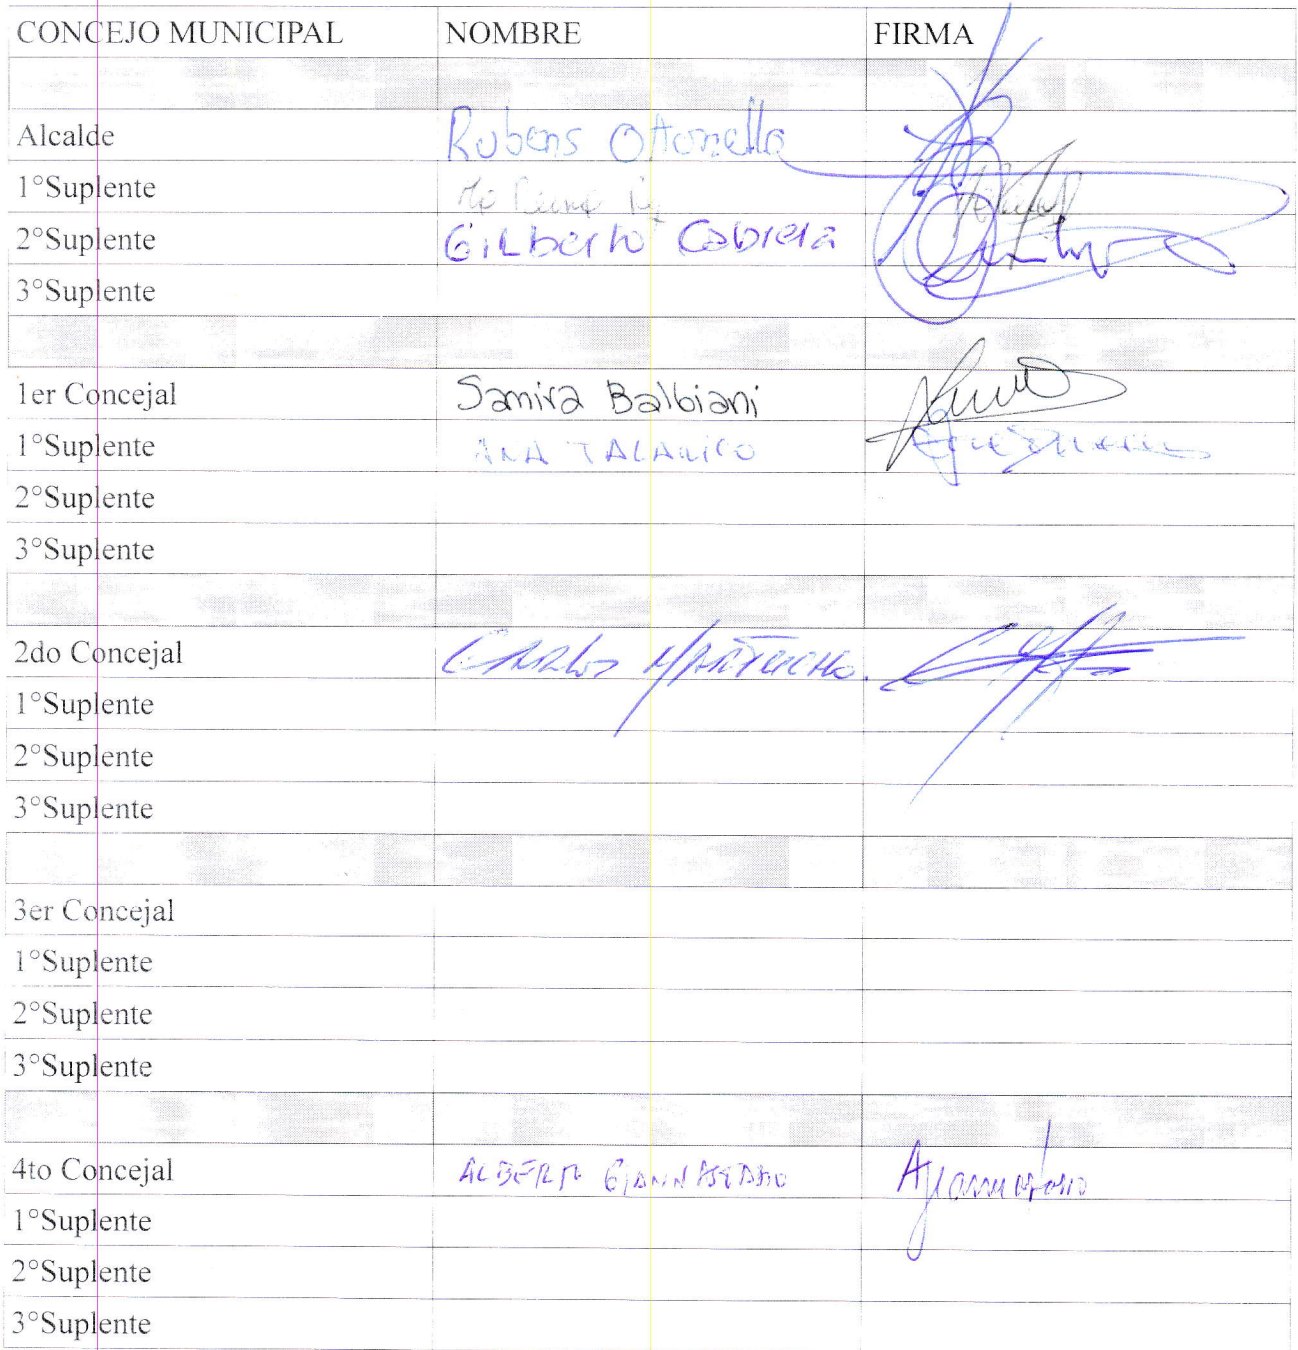 CONCEJO MUNICIPAL NOMBRE FIRMA
Alcalde Rubens Ottonello
1°Suplente
2°Suplente Gilberto Cabrera
3°Suplente
1er Concejal Samira Balbiani
1°Suplente ANA TALAMICO
2°Suplente
3°Suplente
2do Concejal CARLOS
1°Suplente
2°Suplente
3°Suplente
3er Concejal
1°Suplente
2°Suplente
3°Suplente
4to Concejal
1°Suplente
2°Suplente
3°Suplente